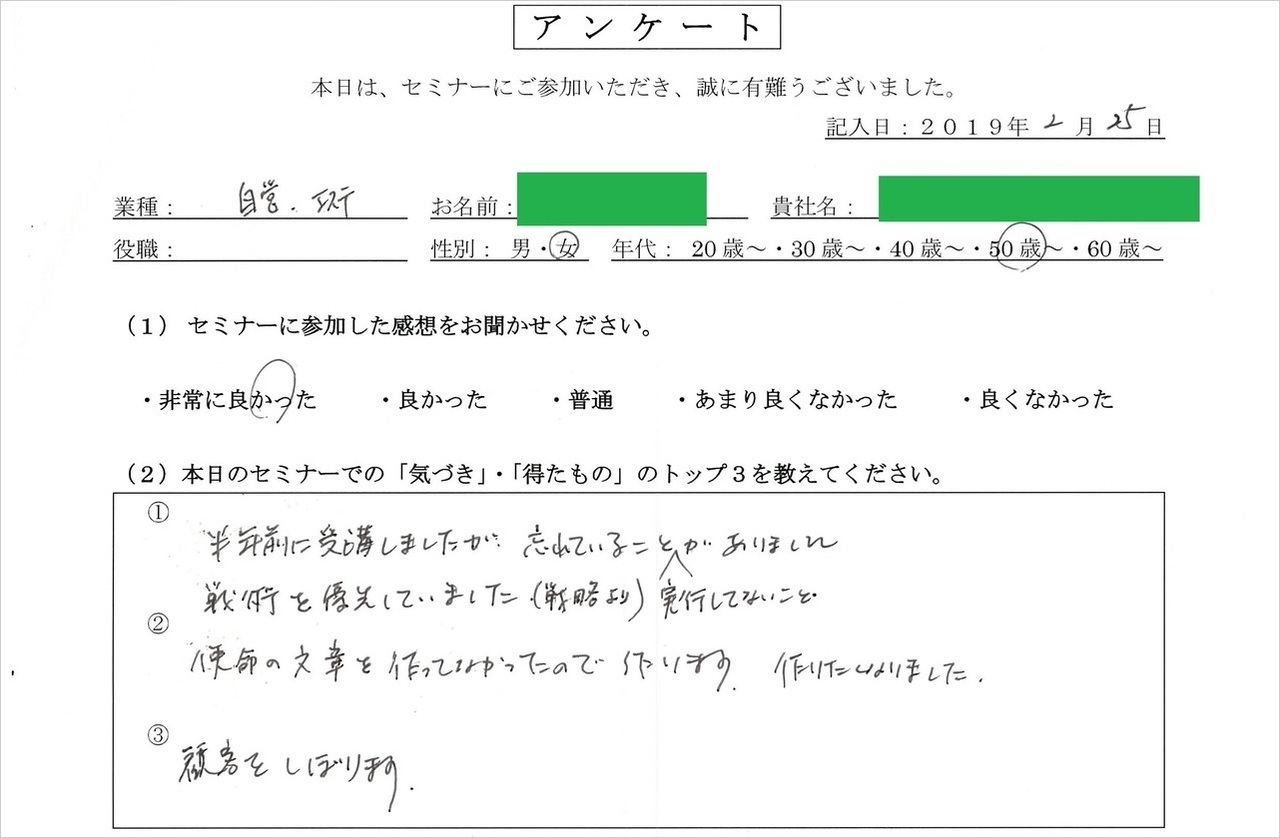 アンケート
本日は、セミナーにご参加いただき、誠に有難うございました。
記入日：２０１９年 2 月 25 日
業種： 自営．エステ お名前： 貴社名：
役職： 性別： 男・女 年代： 20歳～・30歳～・40歳～・50歳～・60歳～
（１） セミナーに参加した感想をお聞かせください。
・非常に良かった ・良かった ・普通 ・あまり良くなかった ・良くなかった
（２）本日のセミナーでの「気づき」・「得たもの」のトップ３を教えてください。
①
半年前に受講しましたが 忘れていることがありました
戦術を優先していました（戦略より）実行してないこと
②
使命の文章を作ってなかったので 作ります. 作りたくなりました.
③
顧客をしぼります.